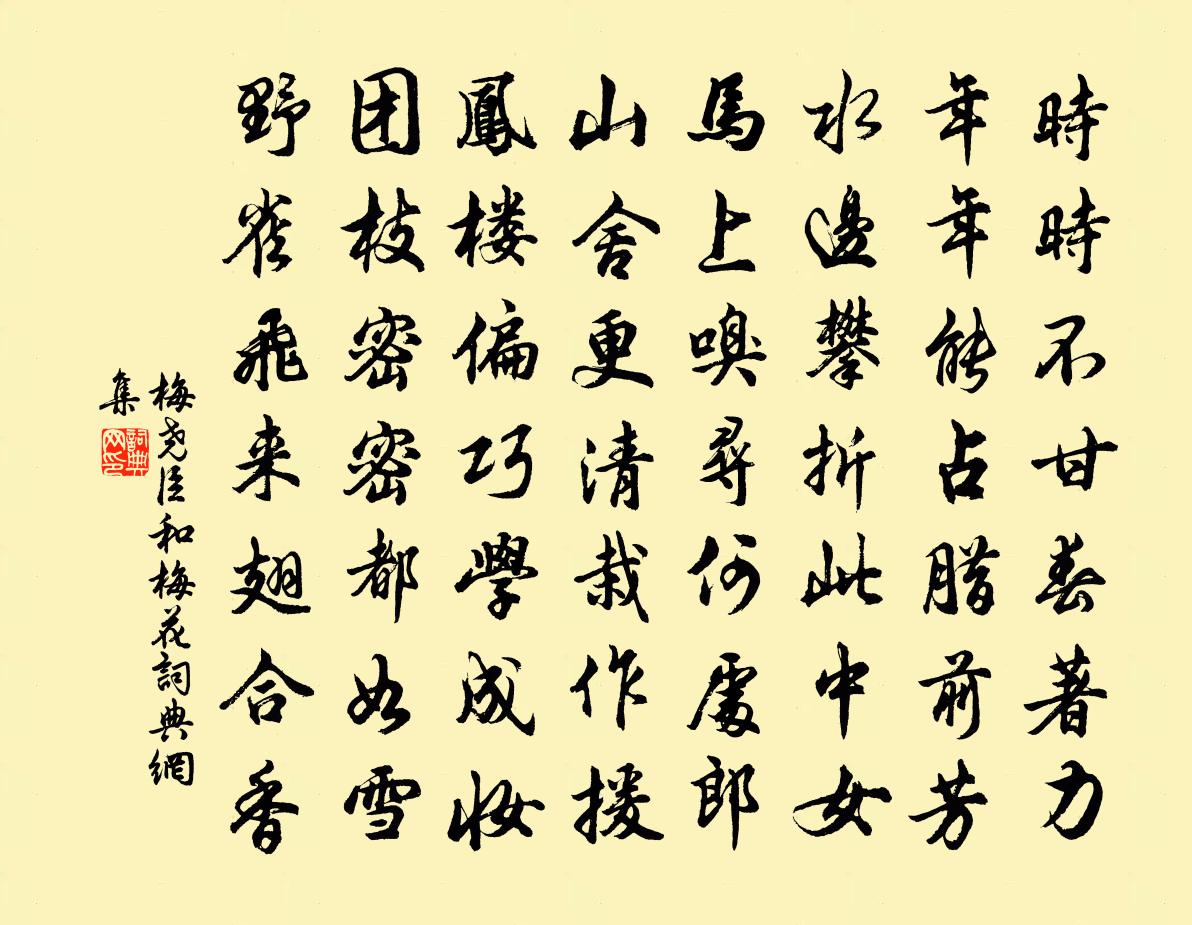 時時不甘春著力
年年能占腊前芳
水邊攀折此中女
馬上嗅尋何處郎
山舍更清栽作援
鳳楼偏巧學成妝
团枝密密都如雪
野雀飛来翅合香
梅尧臣和梅花詞典網
集
詞典
网印